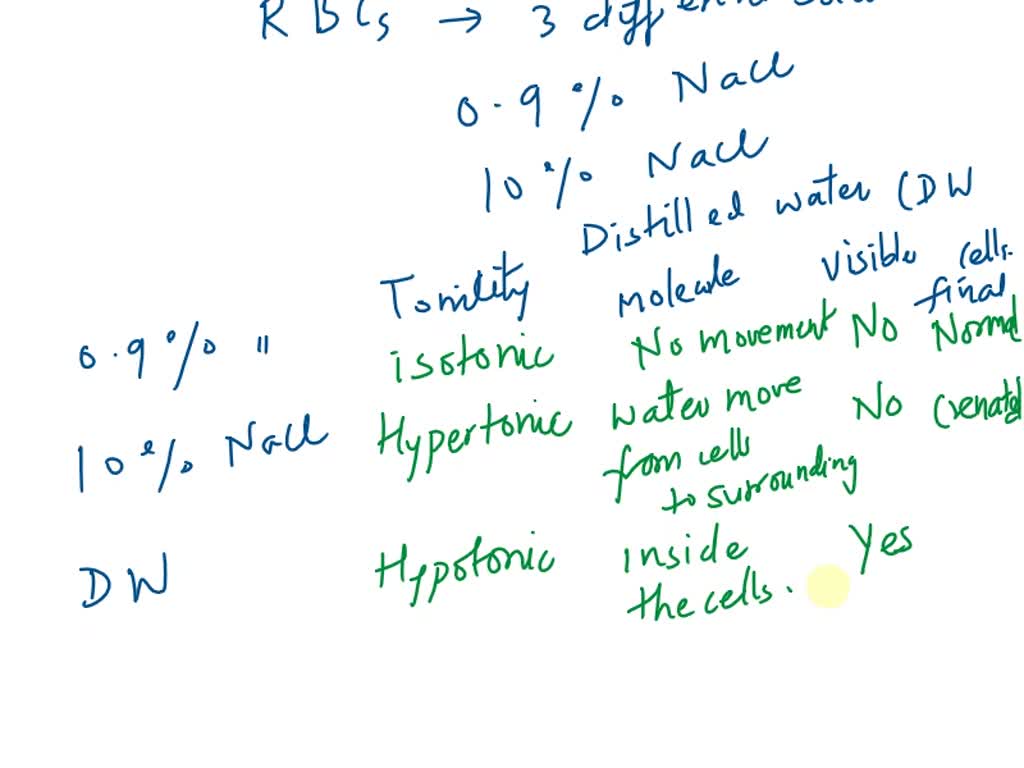 RBCs → 3 different
0.9 % Nacl
10 % Nacl
Distilled water (DW
Tonicity molecule visible cells.
final
0.9 % " isotonic No movement No Normal
10 % Nacl Hypertonic water move No crenated
from cells
to surrounding
DW Hypotonic inside Yes
the cells.